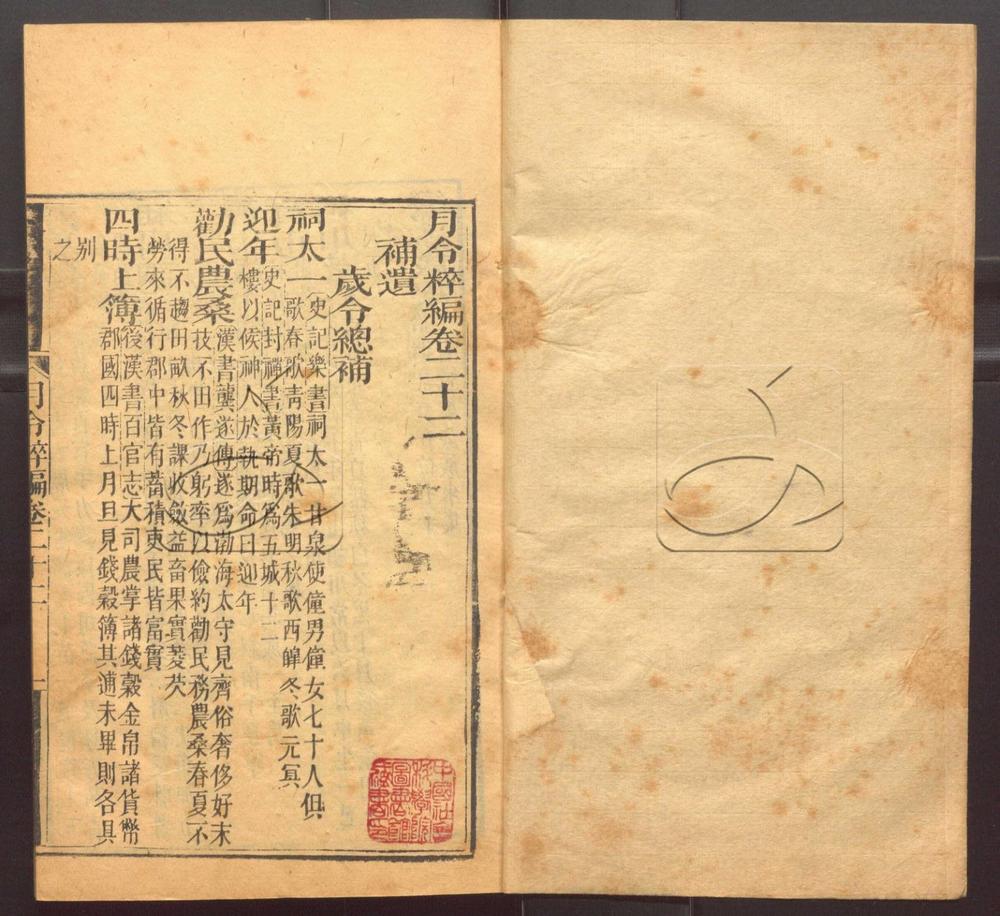 月令粹編卷二十二
補遺
歲令總補
祠太一史記樂書祠太一甘泉使僮男僮女七十人俱
歌春歌靑陽夏歌朱明秋歌西皥冬歌元冥
迎年史記封禪書黃帝時爲五城十二
樓以候神人於執期命曰迎年
勸民農桑漢書龔遂傳遂爲渤海太守見齊俗奢侈好末
技不田作乃躬率以儉約勸民務農桑春夏不
得不趨田畝秋冬課收斂益畜果實菱芡
勞來循行郡中皆有蓄積吏民皆富實
四時上簿後漢書百官志大司農掌諸錢穀金帛諸貨幣
郡國四時上月旦見錢穀簿其逋未畢則各具
别
之
月令粹編卷二十二 一